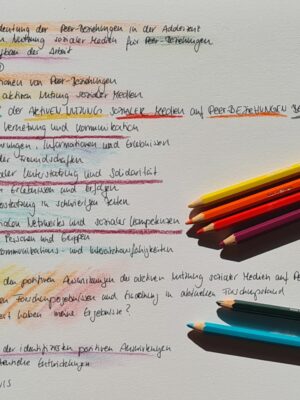 deutung der Peer-Beziehungen in der Adoleszenz
Nutzung sozialer Medien für Peer-Beziehungen
der Arbeit
von Peer-Beziehungen
aktiven Nutzung sozialer Medien
der AKTIVEN NUTZUNG SOZIALER MEDIEN auf PEER-BEZIEHUNGEN
Vernetzung und Kommunikation
Informationen und Erlebnissen
der Freundschaften
Unterstützung und Solidarität
Erlebnissen und Erfolgen
in schwierigen Zeiten
Netzwerks und sozialer Kompetenzen
Personen und Gruppen
Kommunikations- und
den positiven Auswirkungen der aktiven Nutzung sozialer Medien auf Peer
Forschungsergebnissen und Einordnung in aktuellen Forschungsstand
haben meine Ergebnisse?
der identifizierten positiven Auswirkungen
Entwicklungen